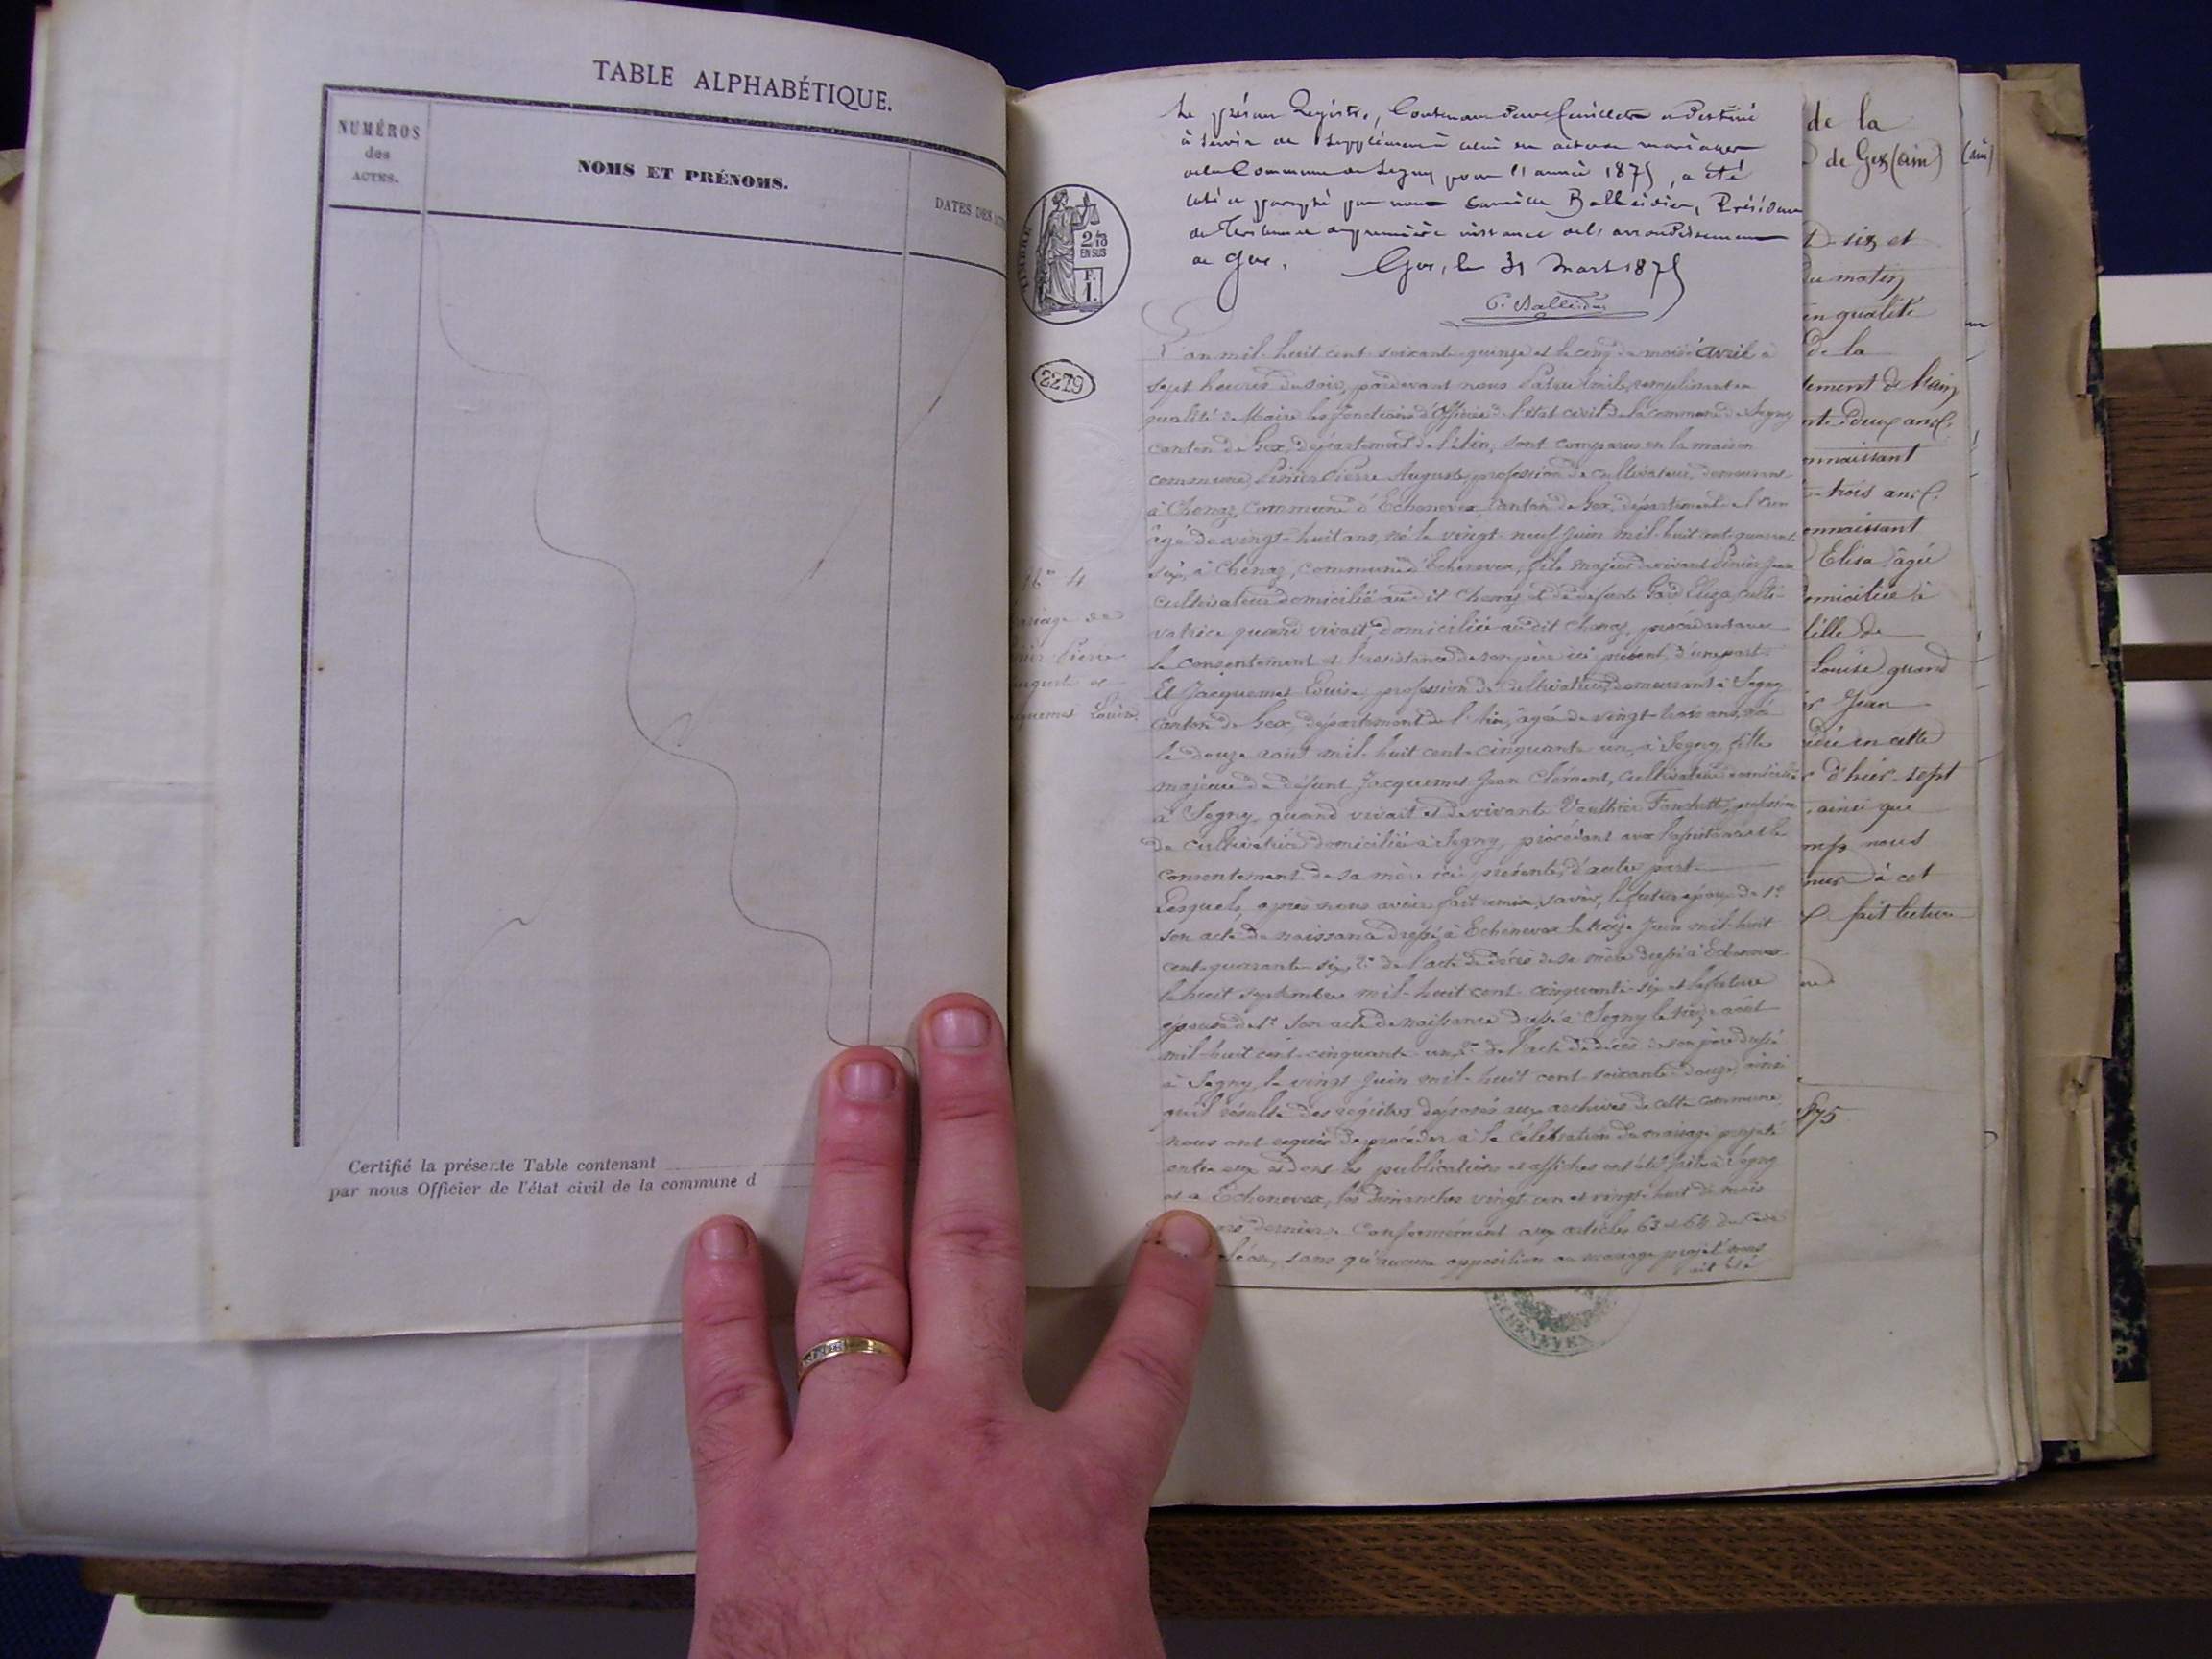 TABLE ALPHABÉTIQUE.
NUMÉROS
des
ACTES.
NOMS ET PRÉNOMS.
DATES DES
Certifié la présente Table contenant
par nous Officier de l'état civil de la commune d
Le présent Registre, Contenant deux feuillets et destiné
à servir de supplément à celui des actes de mariages
de la Commune de Segny pour l'année 1875, a été
coté et paraphé par nous Camille Balleidier, Président
du Tribunal de première instance de l'arrondissement
de Gex. Gex, le 31 Mars 1875
C. Balleidier
TIMBRE
2/10
EN SUS
F.
1.
2279
N° 4
Mariage de
Pierre
Auguste et
Jacquemet Louise
L'an mil huit cent soixante quinze et le cinq du mois d'avril à
sept heures du soir, pardevant nous Emile, remplissant en
qualité de Maire les fonctions d'Officier de l'état civil de la commune de Segny
canton de Gex, département de l'Ain, sont comparus en la maison
commune, Pierre Auguste, profession de cultivateur, demeurant
à Chenaz, commune d'Echenevex, canton de Gex, département de l'Ain
âgé de vingt-huit ans, né le vingt-neuf Juin mil huit cent quarante
six, à Chenaz, commune d'Echenevex, fils majeur de vivant Jean
cultivateur domicilié au dit Chenaz et de défunte Eliza, culti-
vatrice quand vivait, domiciliée au dit Chenaz, procédant avec
le consentement et l'assistance de son père ici présent, d'une part.
Et Jacquemet Louise, profession de cultivatrice, demeurant à Segny
canton de Gex, département de l'Ain, âgée de vingt-trois ans, née
le douze août mil huit cent cinquante un, à Segny, fille
majeure de défunt Jacquemet Jean Clément, cultivateur domicilié
à Segny, quand vivait et de vivante Vaulthier Fanchette, profession
de cultivatrice domiciliée à Segny, procédant avec l'assistance et le
consentement de sa mère ici présente, d'autre part.
Lesquels, après nous avoir fait remise, savoir, le futur époux de 1°
son acte de naissance dressé à Echenevex le treize Juin mil huit
cent quarante six, 2° de l'acte de décès de sa mère dressé à Echenevex
le huit septembre mil huit cent cinquante-six et la future
épouse de 1° son acte de naissance dressé à Segny le treize août
mil huit cent cinquante un, 2° de l'acte de décès de son père dressé
à Segny, le vingt Juin mil huit cent soixante-douze, ainsi
qu'il résulte des registres déposés aux archives de cette commune
nous ont requis de procéder à la célébration du mariage projeté
entre eux et dont les publications et affiches ont été faites à Segny
et à Echenevex, les dimanches vingt-un et vingt-huit du mois
dernier. Conformément aux articles 63 et 64 du Code
sans qu'aucune opposition au mariage projeté nous
ait été
de la
de Gex (Ain)
six et
du matin
en qualité
de la
deux ans
connaissant
trois ans
connaissant
Elisa âgée
domiciliée à
fille de
Louise quand
Jean
en cette
d'hier sept
ainsi que
nous
à cet
fait lecture
1875
ECHENEVEX